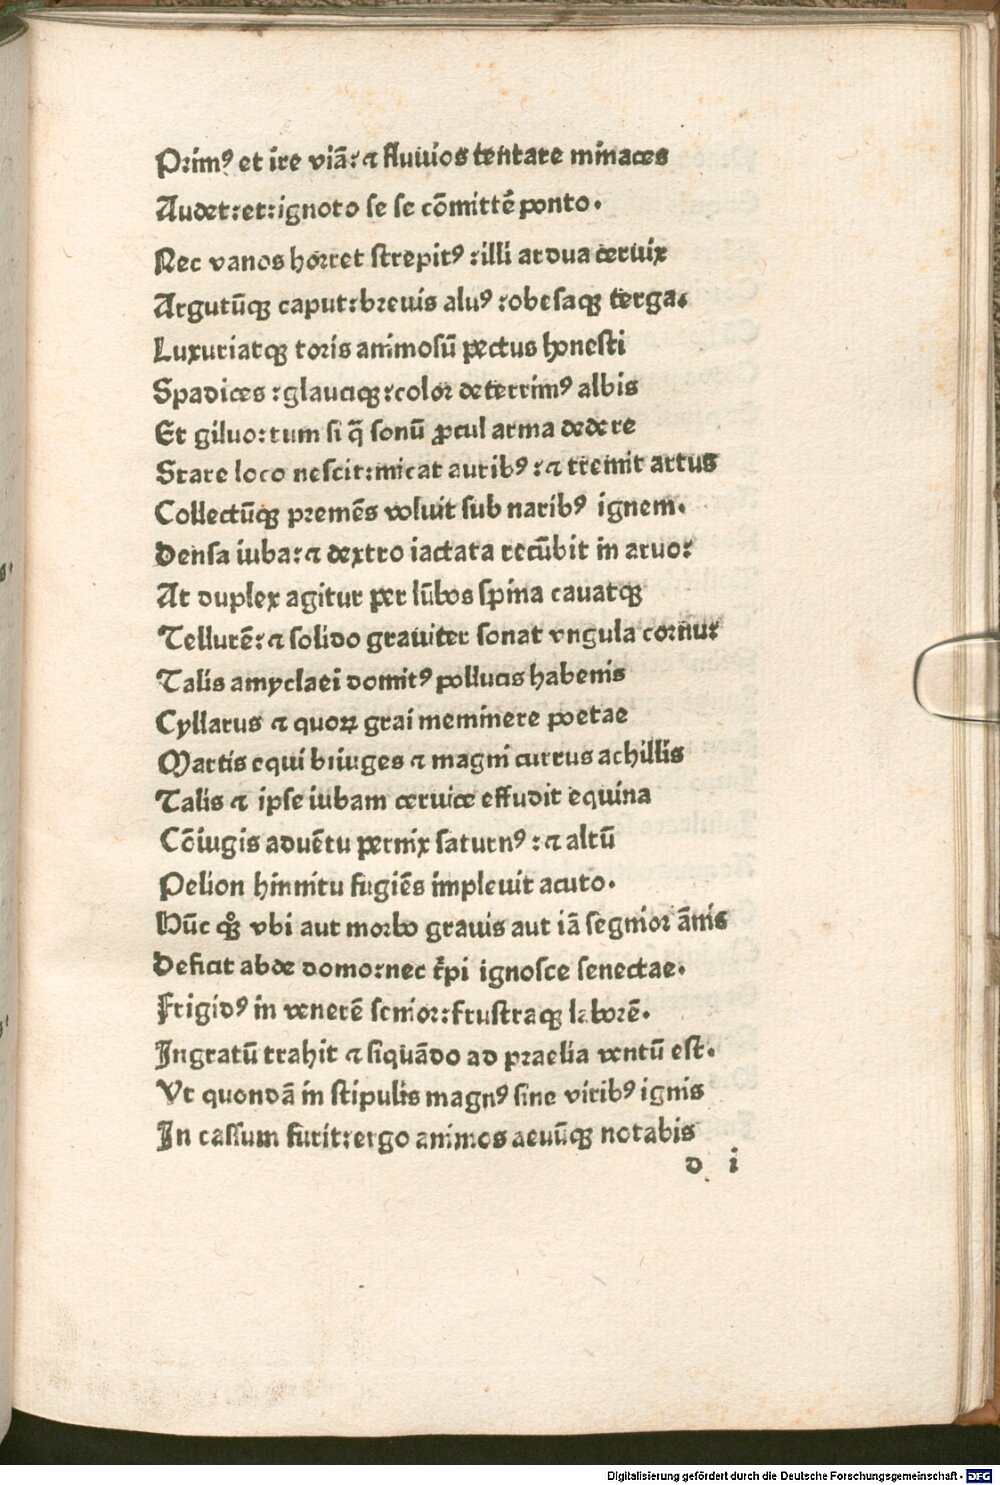 Primꝰ et ire viā:⁊ fluuios tentare minaces
Audet:et:ignoto se se cōmittē ponto.
Nec vanos horret strepitꝰ :illi ardua ceruix
Argutūqꝫ caput:breuis aluꝰ :obesaqꝫ terga.
Luxuriatqꝫ toris animosū pectus honesti
Spadices :glauciqꝫ:color deterrimꝰ albis
Et giluo:tum si q̄ sonū ꝓcul arma dedere
Stare loco nescit:micat auribꝰ :⁊ tremit artus
Collectūqꝫ premēs voluit sub naribꝰ ignem.
Densa iuba:⁊ dextro iactata recūbit in aruo:
At duplex agitur per lūbos spina cauatqꝫ
Tellurē:⁊ solido grauiter sonat vngula cornu:
Talis amyclaei domitꝰ pollucis habenis
Cyllarus ⁊ quoꝝ grai meminere poetae
Martis equi biiuges ⁊ magni currus achillis
Talis ⁊ ipse iubam ceruice effudit equina
Cōiugis aduētu pernix saturnꝰ :⁊ altū
Pelion hinnitu fugiēs impleuit acuto.
Hūc qꝫ vbi aut morbo grauis aut iā segnior ānis
Deficit abde domo:nec t̄pi ignosce senectae.
Frigidꝰ in venerē senior:frustraqꝫ laborē.
Ingratū trahit ⁊ siquādo ad praelia ventū est.
Vt quondā in stipulis magnꝰ sine viribꝰ ignis
In cassum furit:ergo animos aeuūqꝫ notabis
d i
Digitalisierung gefördert durch die Deutsche Forschungsgemeinschaft - DFG